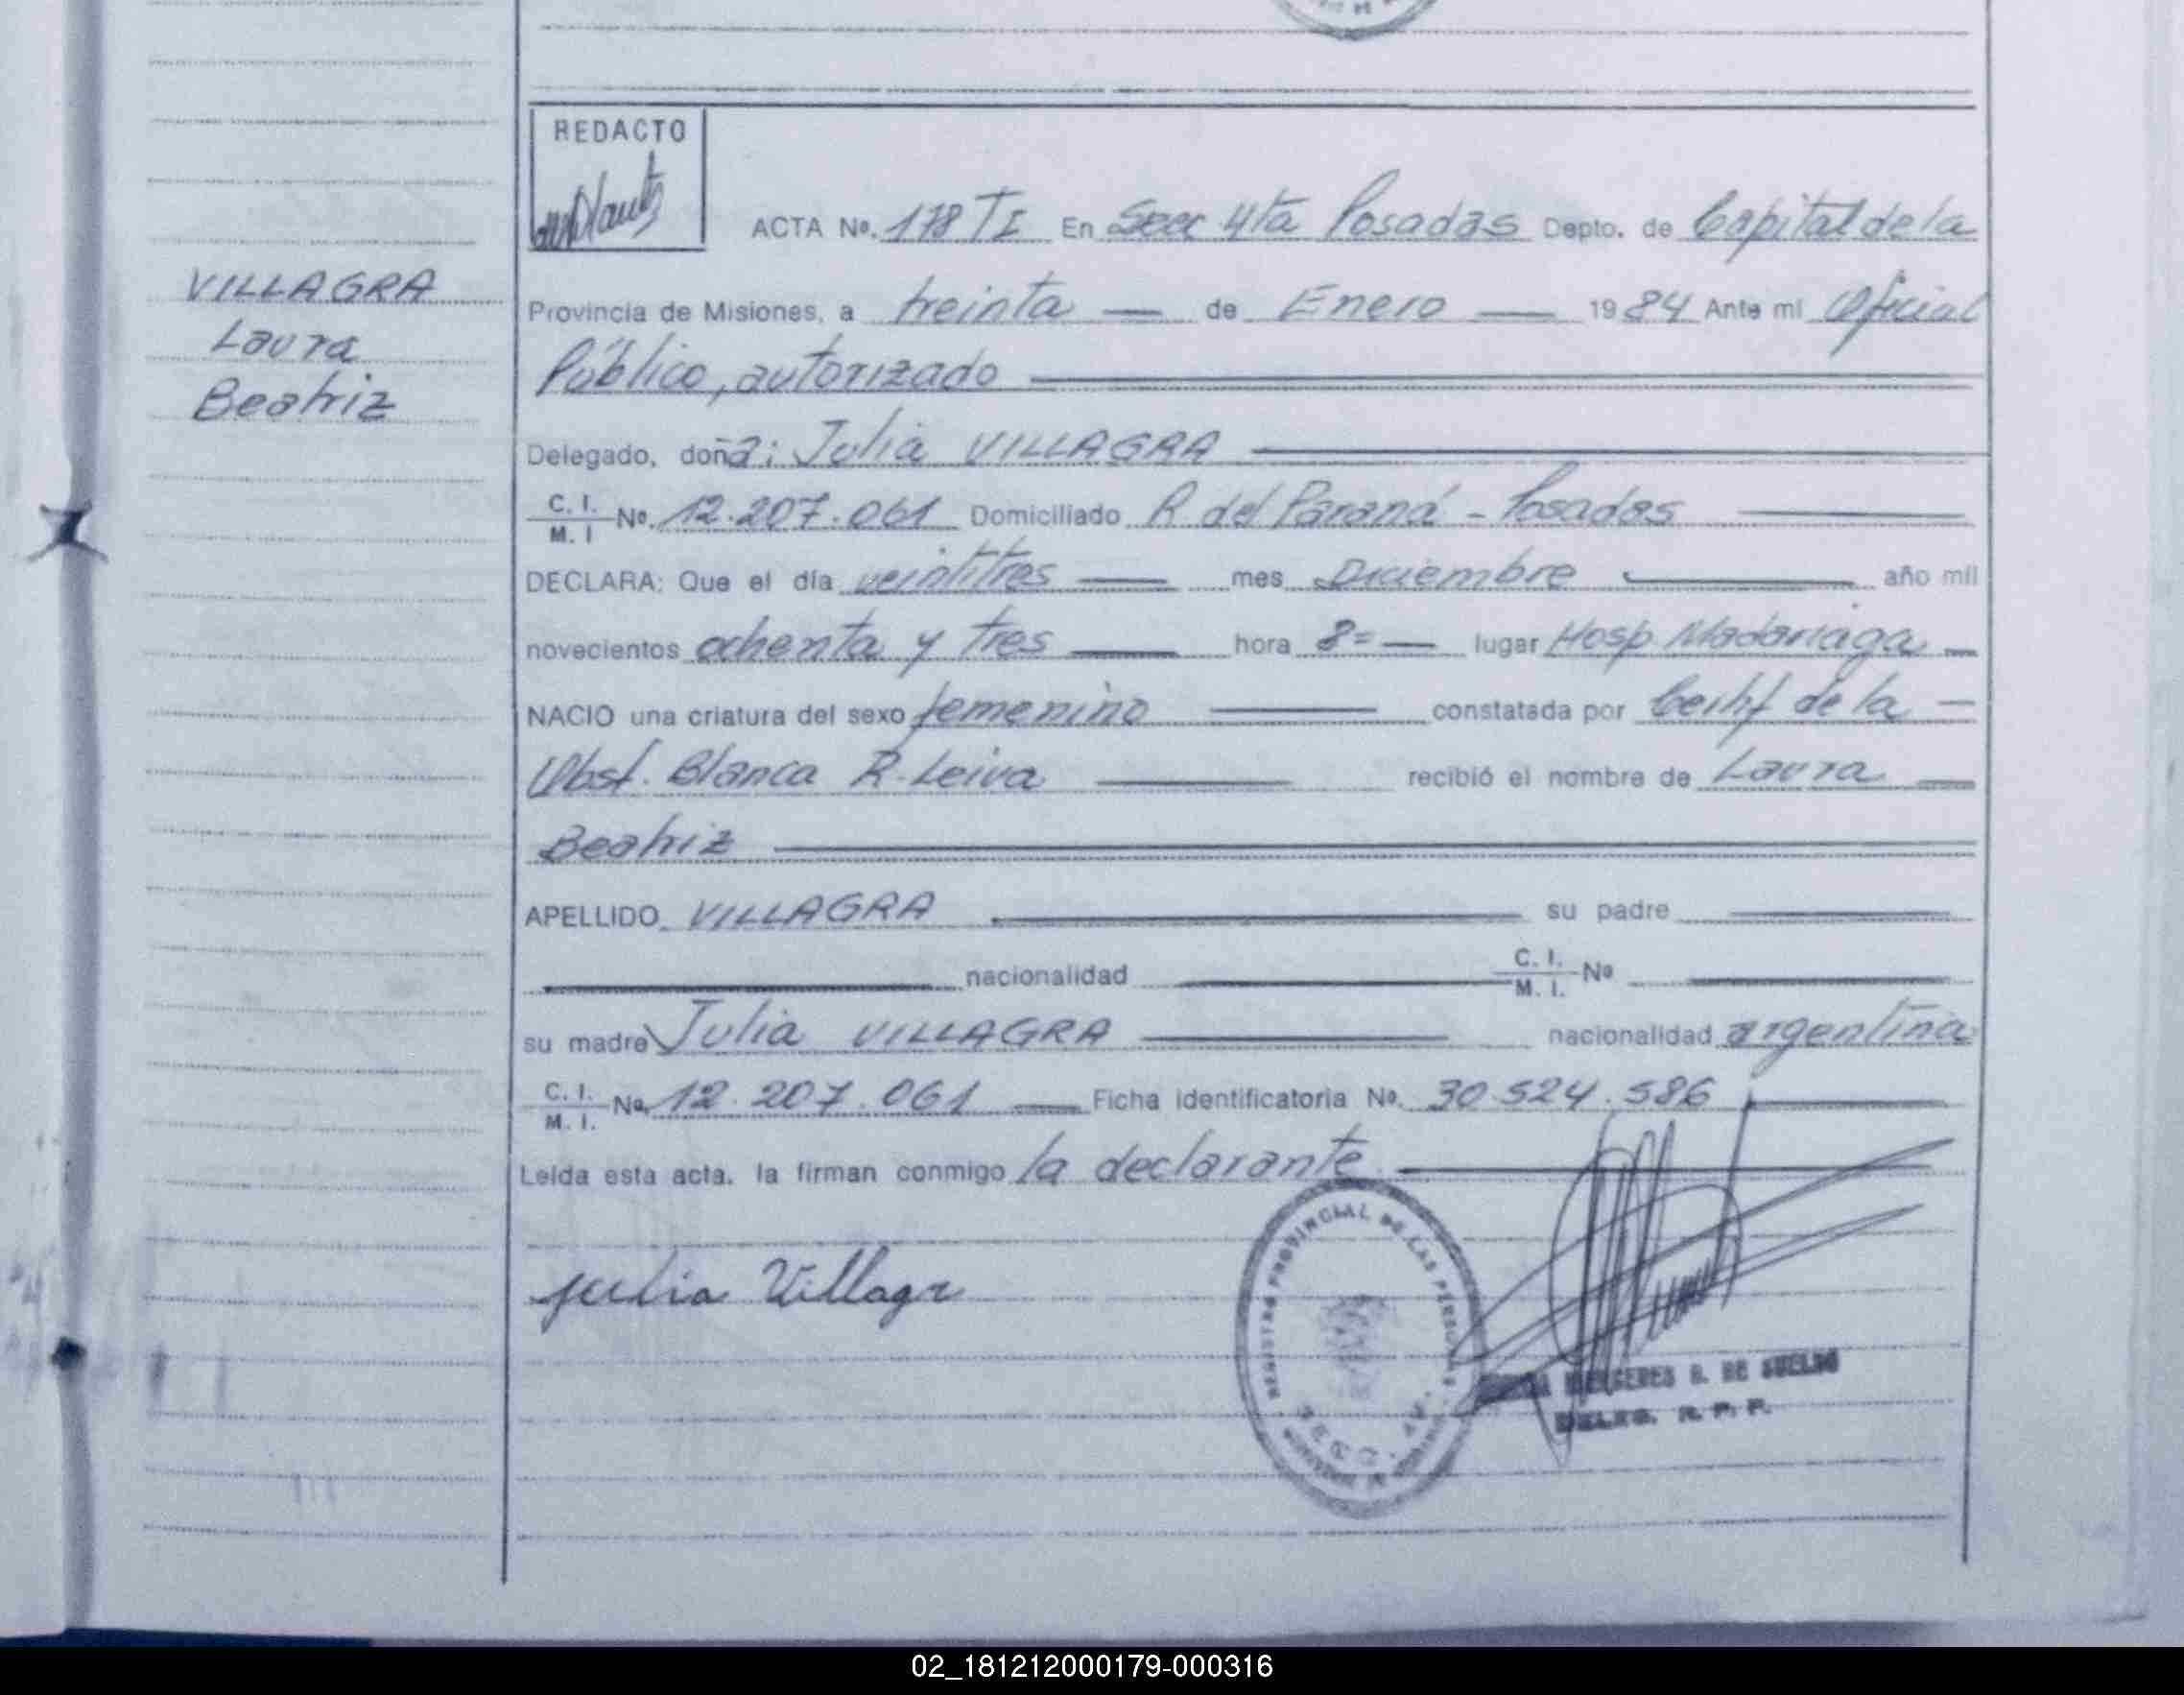 REDACTO
ACTA Nº. 178 TI En Secc 4ta Posadas Depto. de Capital de la
VILLAGRA
Laura
Beatriz
Provincia de Misiones, a treinta — de Enero — 1984 Ante mi Oficial
Público, autorizado
Delegado, doña: Julia VILLAGRA
C. I. M. I Nº. 12.207.061 Domiciliado R del Paraná - Posadas
DECLARA: Que el día veintitres — mes Diciembre — año mil
novecientos ochenta y tres — hora 8= — lugar Hosp. Madariaga —
NACIO una criatura del sexo femenino — constatada por Certif de la —
Obst. Blanca R. Leiva — recibió el nombre de Laura —
Beatriz
APELLIDO VILLAGRA — su padre —
nacionalidad — C. I. M. I. Nº —
su madre Julia VILLAGRA — nacionalidad argentina
C. I. M. I. Nº 12.207.061 — Ficha identificatoria Nº. 30.524.586
Leida esta acta. la firman conmigo la declarante
Julia Villagr
REGISTRO PROVINCIAL DE LAS PERSONAS
SECC.
DE SUELDO
DELEG. R. P. P.
02_181212000179-000316